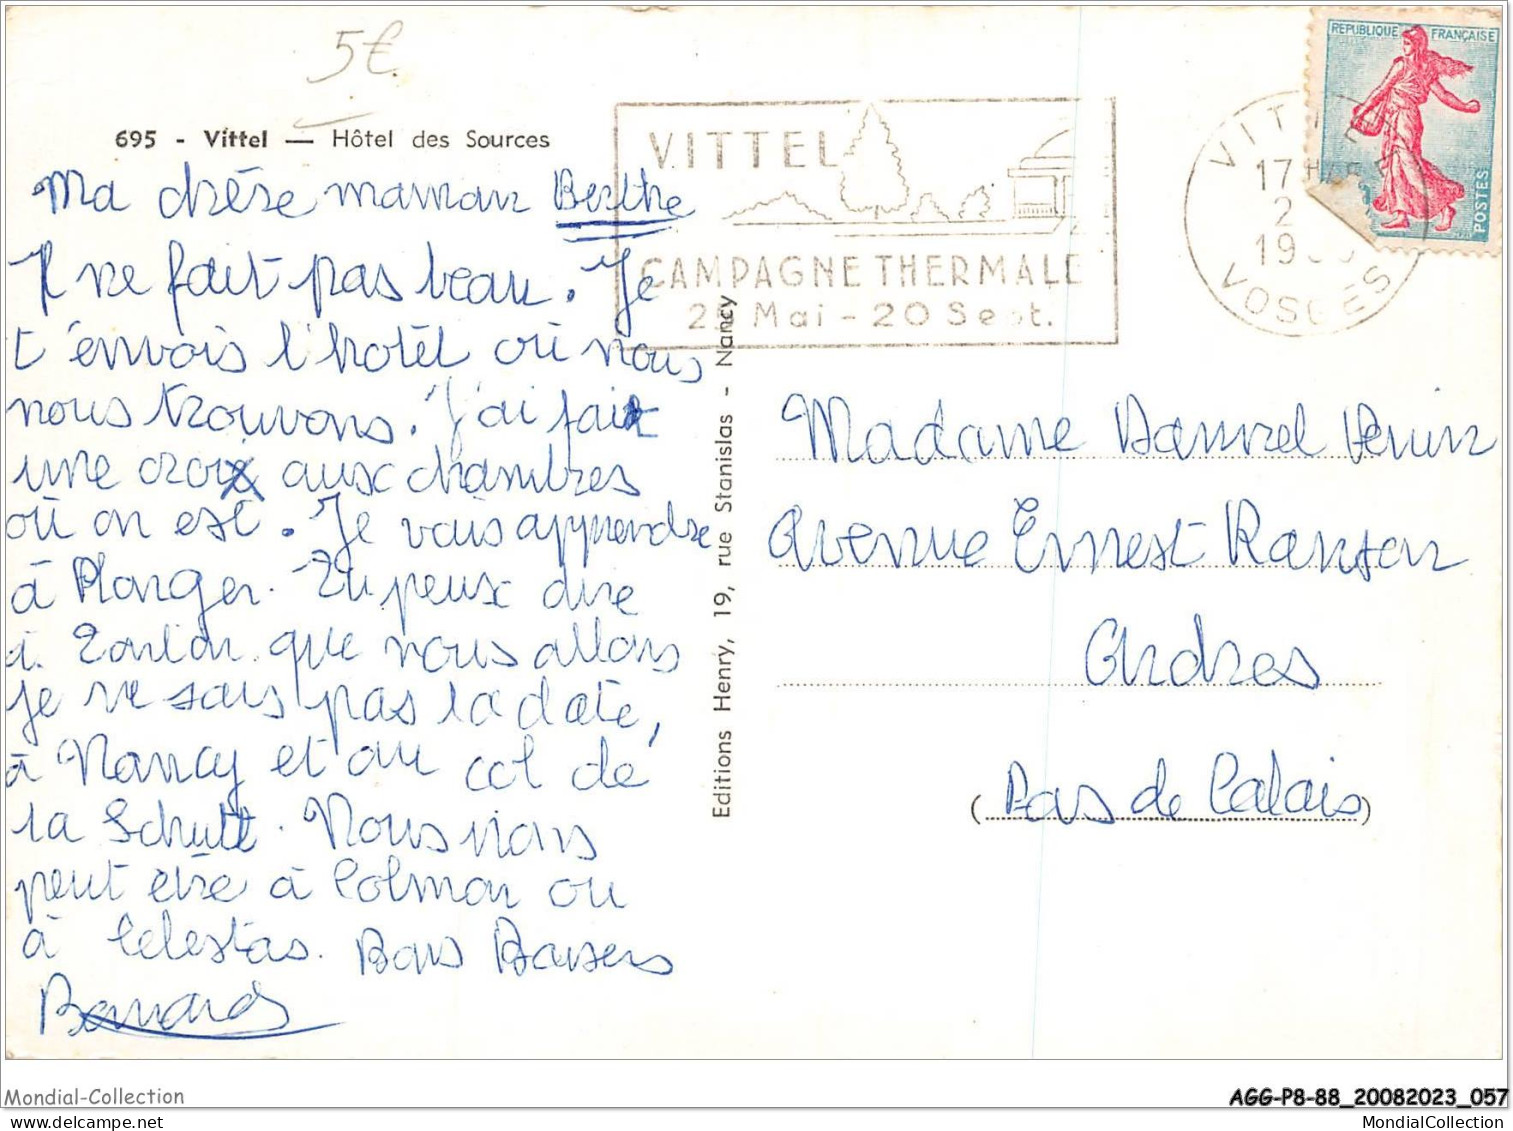 5€
695 - Vittel — Hôtel des Sources
Ma chère maman Berthe
Il ne fait pas beau. Je
t'envois l'hotêl où nous
nous trouvons. J'ai fait
une croix aux chambres
où on est. Je vais apprendre
à Plonger. Tu peux dire
à Tonton que nous allons
je ne sais pas la date,
à Nancy et au col de
la Schult. Nous irons
peut être à Colmar ou
à Celestas. Bons Baisers
Bernard
Editions Henry, 19, rue Stanislas - Nancy
VITTEL
CAMPAGNE THERMALE
25 Mai - 20 Sept.
VITTEL
17 H
2
19
VOSGES
REPUBLIQUE FRANÇAISE
POSTES
Madame Henin
Avenue Ernest Ranson
Ardres
(Pas de Calais)
Mondial-Collection
AGG-P8-88_20082023_057
mut.com
MondialCollection